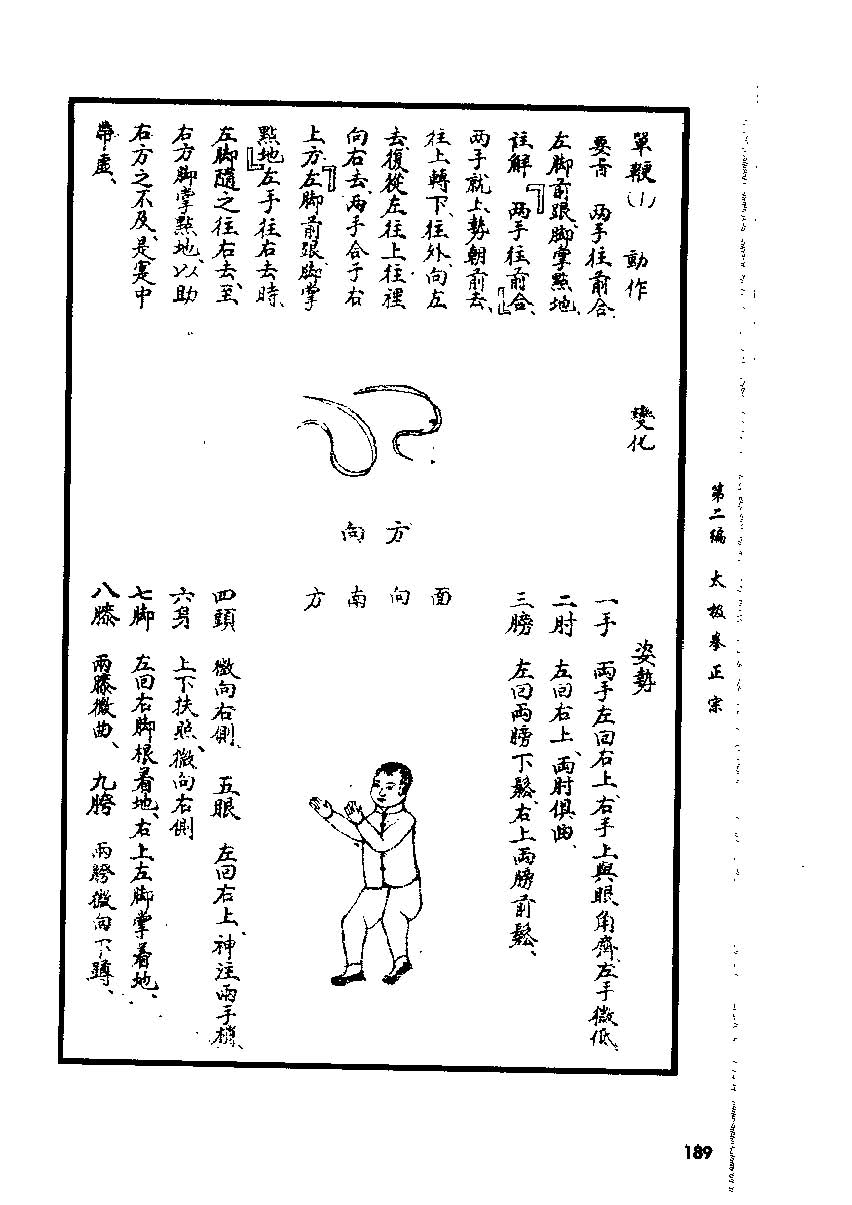 第二編 太极拳正宗
單鞭(1) 動作
要言 两手往前合、
左脚前跟、脚掌點地、
註解 『两手往前合、』
两手就上势朝前去、
往上轉下、往外、向左
去、復從左往上往裡
向右去、两手合于右
上方、『左脚前跟、脚掌
點地』左手往右去時、
左脚隨之往右去、至
右方脚掌點地、以助
右方之不及、是寔中
帶虚、
變化
方向
面向南方
姿势
一手 两手左回右上、右手上與眼角齊、左手微低、
二肘 左回右上、两肘俱曲、
三膀 左回两膀下鬆、右上两膀前鬆、
四頭 微向右側、 五眼 左回右上、神注两手梢、
六身 上下扶照、微向右側
七脚 左回右脚根着地、右上左脚掌着地、
八膝 两膝微曲、 九胯 两胯微向下蹲、
189